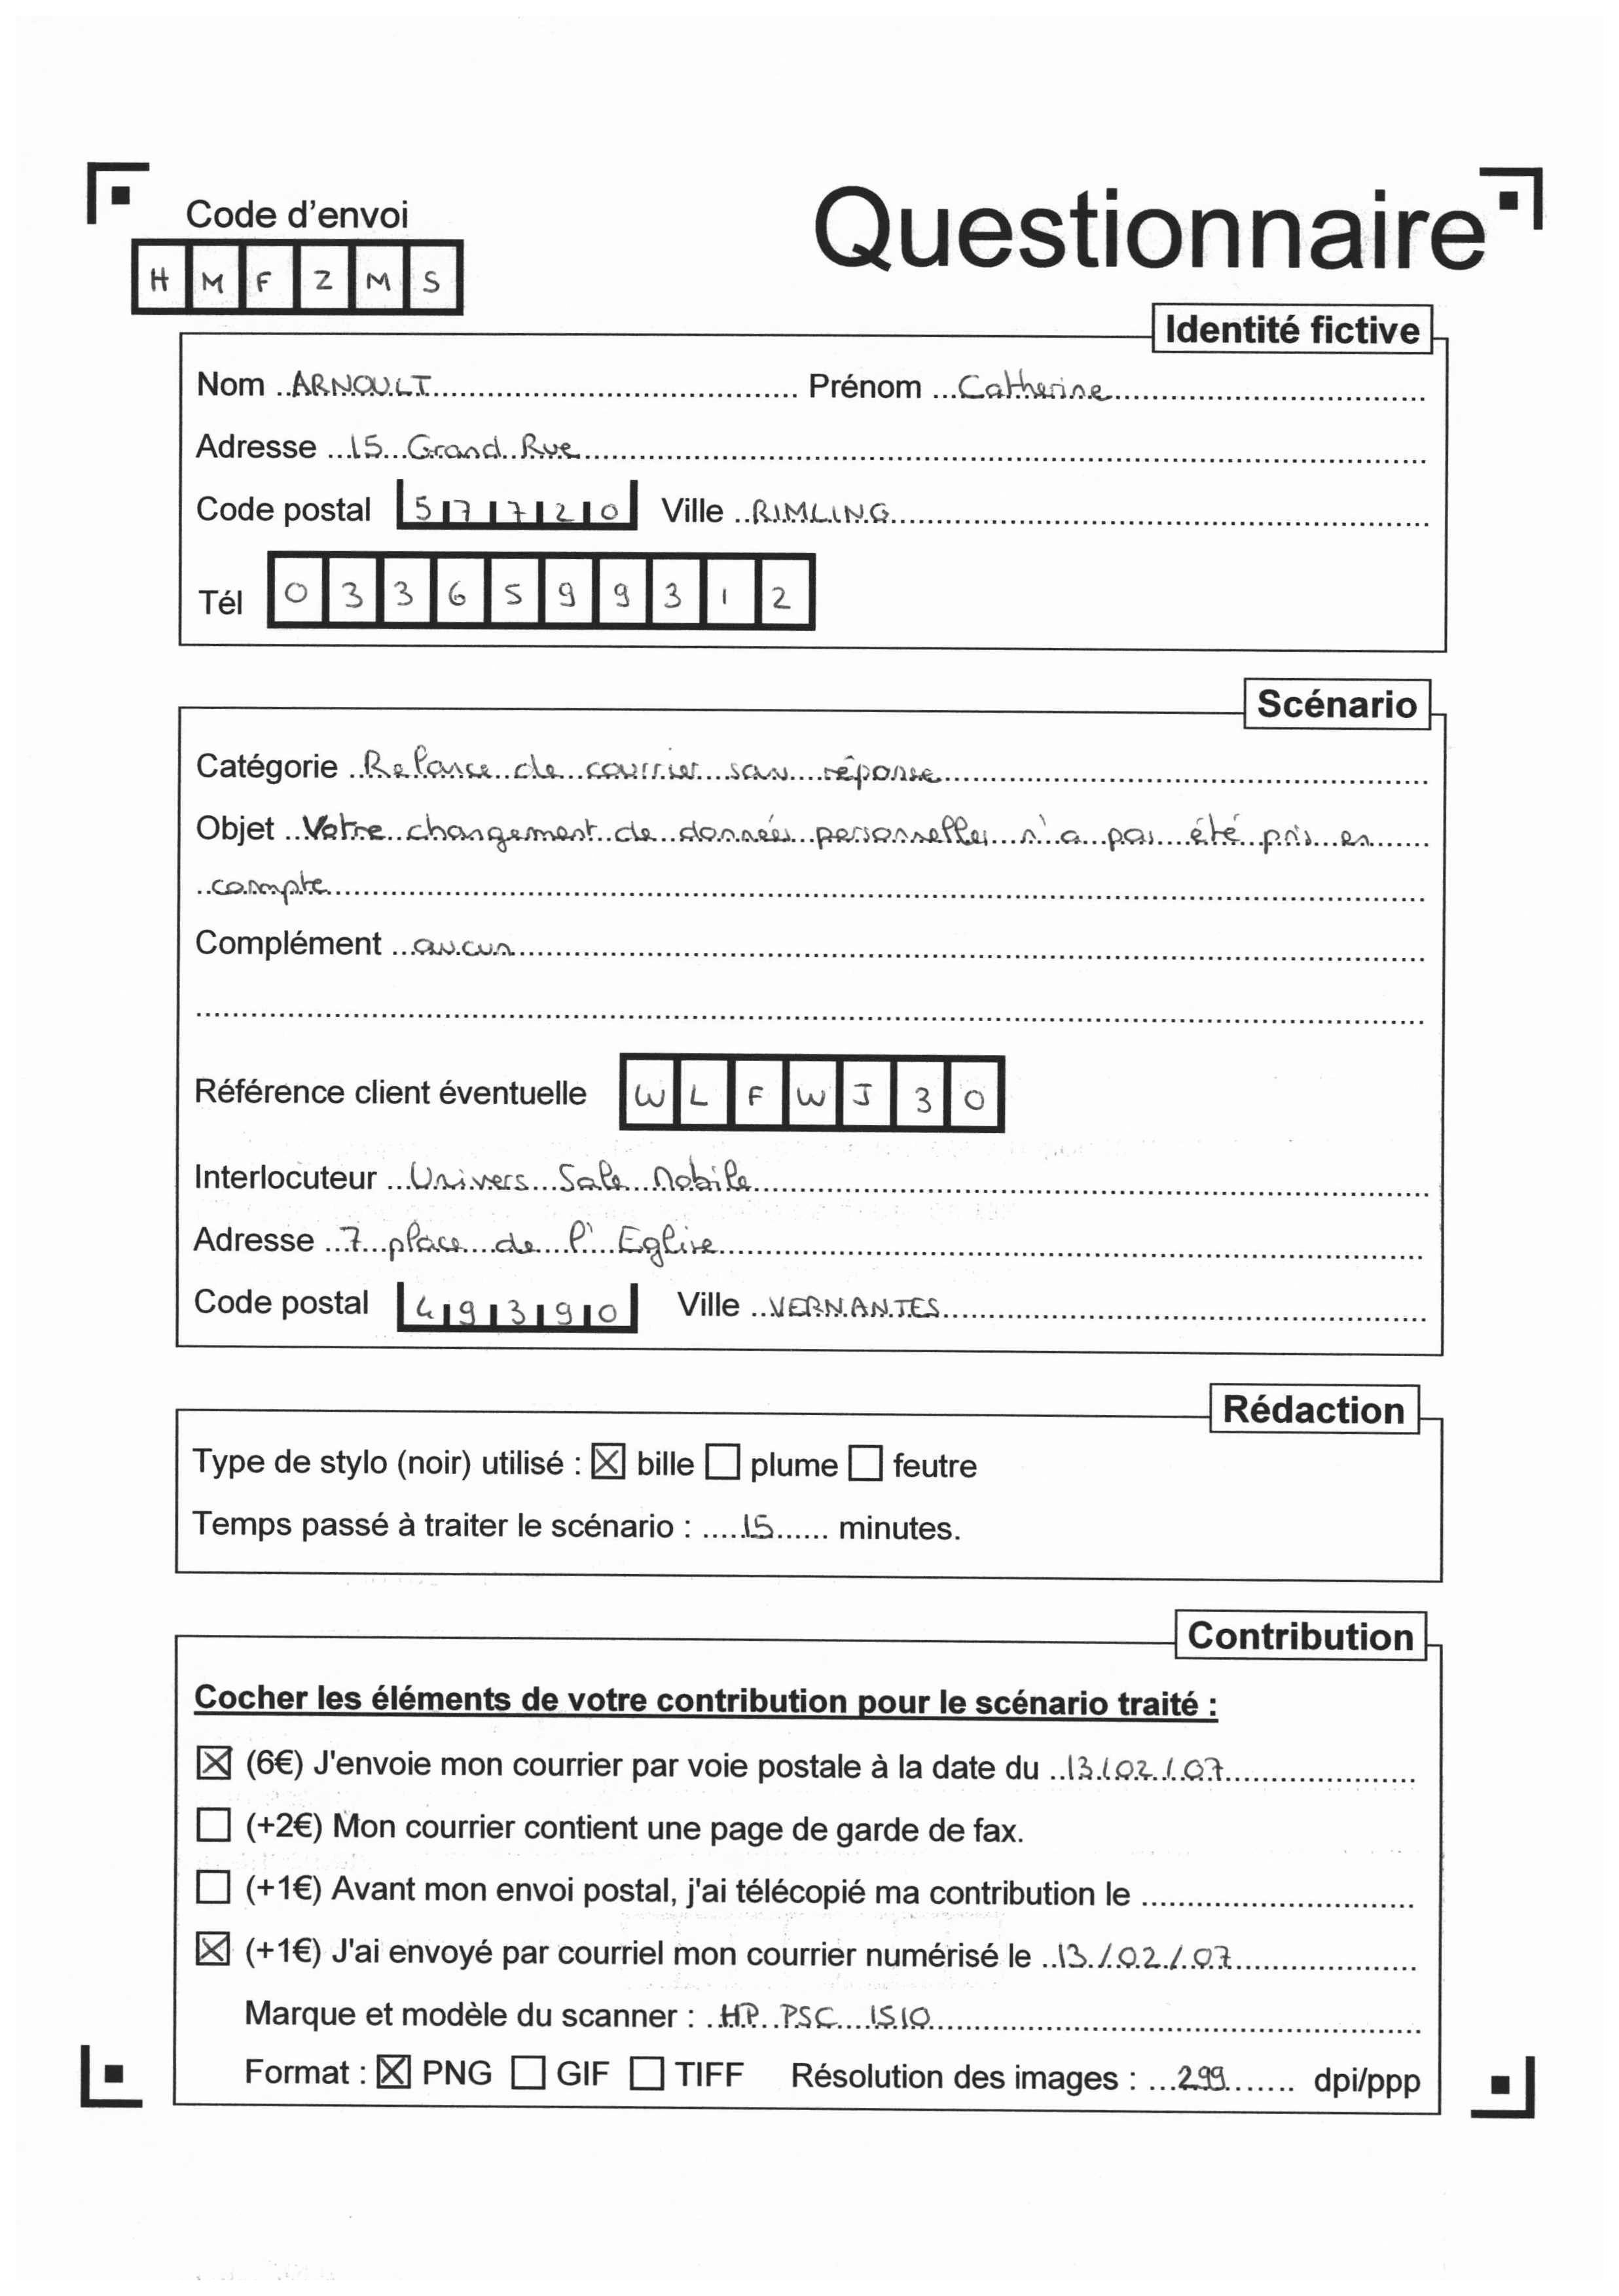 Code d'envoi
Questionnaire
H M F Z M S
Identité fictive
Nom ARNOULT Prénom Catherine
Adresse 15 Grand Rue
Code postal 57720 Ville RIMLING
Tél 0336599312
Scénario
Catégorie Relance de courrier sans réponse
Objet Votre changement de données personnelles n'a pas été pris en
compte
Complément aucun
Référence client éventuelle W L F W J 3 0
Interlocuteur Univers Sale Mobile
Adresse 7 place de l'Eglise
Code postal 49390 Ville VERNANTES
Rédaction
Type de stylo (noir) utilisé : ☒ bille ☐ plume ☐ feutre
Temps passé à traiter le scénario : 15 minutes.
Contribution
Cocher les éléments de votre contribution pour le scénario traité :
☒ (6€) J'envoie mon courrier par voie postale à la date du 13/02/07
☐ (+2€) Mon courrier contient une page de garde de fax.
☐ (+1€) Avant mon envoi postal, j'ai télécopié ma contribution le
☒ (+1€) J'ai envoyé par courriel mon courrier numérisé le 13/02/07
Marque et modèle du scanner : HP PSC 1510
Format : ☒ PNG ☐ GIF ☐ TIFF Résolution des images : 299 dpi/ppp